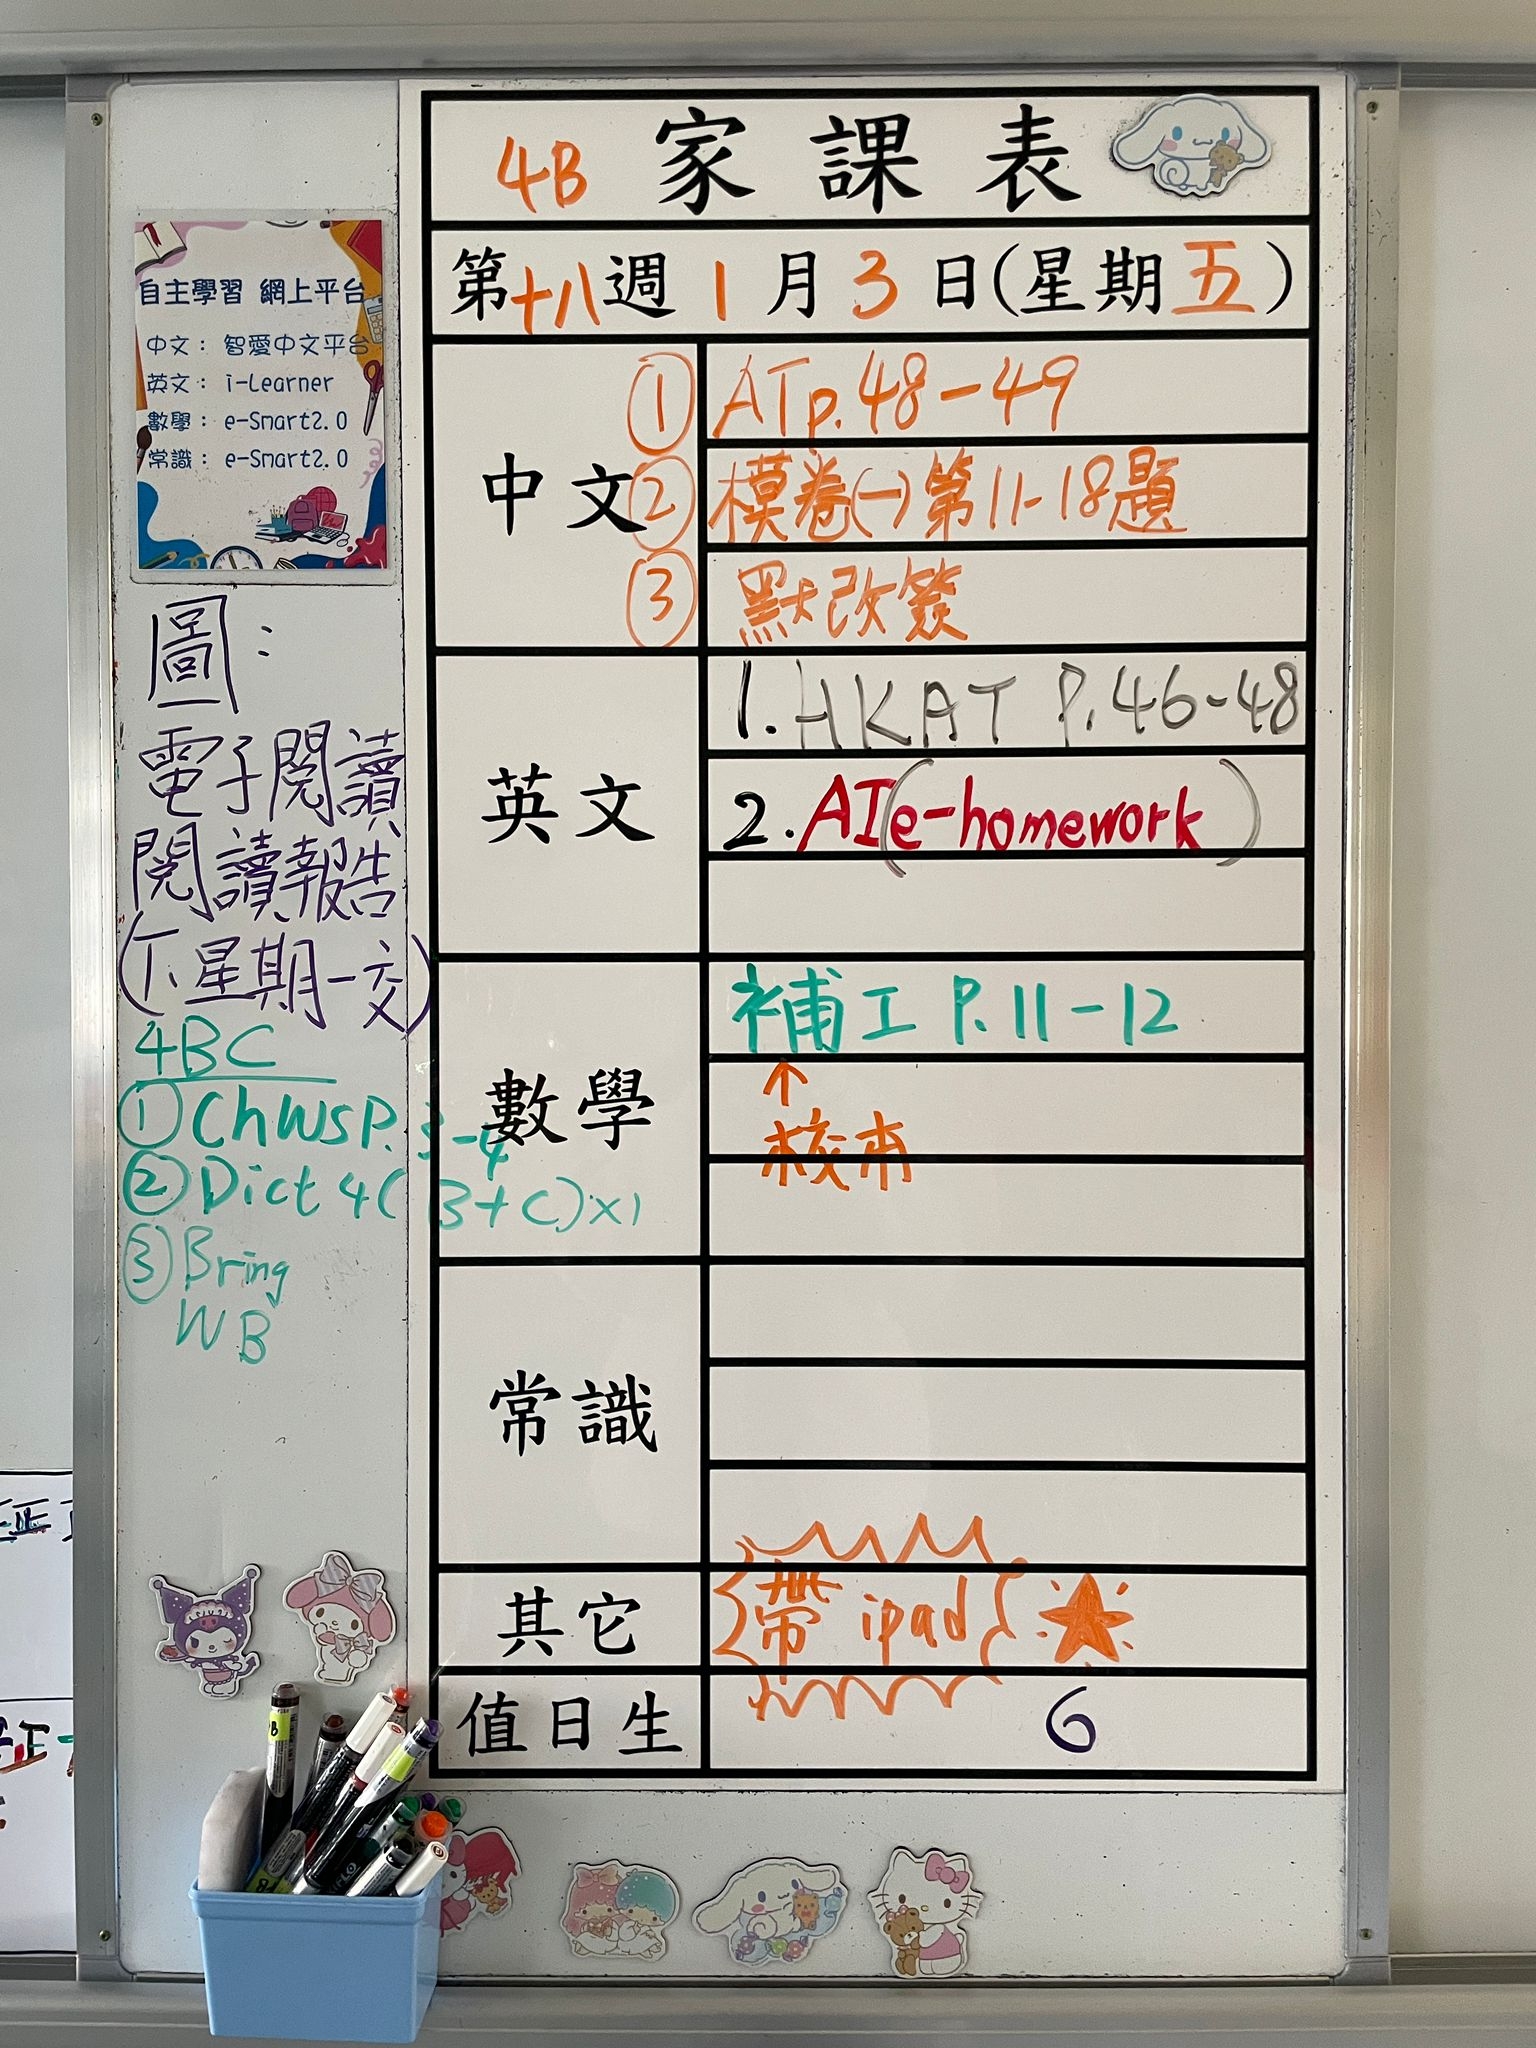 4B 家課表
第十八週 1月3日(星期五)
自主學習 網上平台
中文： 智愛中文平台
英文： i-Learner
數學： e-Smart2.0
常識： e-Smart2.0
圖：
電子閱讀
閱讀報告
(下星期一交)
4BC
① Ch WS P. 3-4
② Dict 4 (B+C)×1
③ Bring
WB
中文
① AT p.48-49
② 模卷(一)第11-18題
③ 默改簽
英文
1. HKAT P.46-48
2. AI(e-homework)
數學
補工 P.11-12
↑
校本
常識
其它
帶 ipad
值日生
6